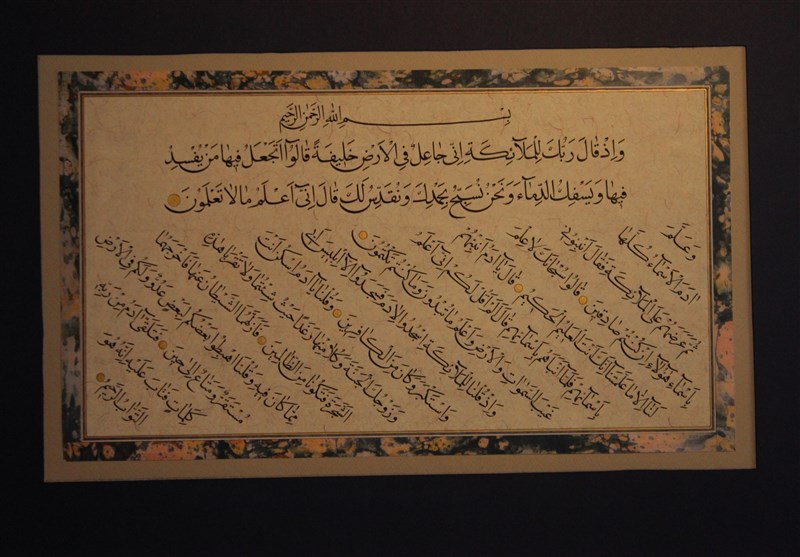 بِسْمِ اللهِ الرَّحْمٰنِ الرَّحِيمِ
وَاِذْ قَالَ رَبُّكَ لِلْمَلَآئِكَةِ اِنِّى جَاعِلٌ فِى الْاَرْضِ خَلِيفَةً قَالُوٓا اَتَجْعَلُ فِيهَا مَنْ يُفْسِدُ
فِيهَا وَيَسْفِكُ الدِّمَآءَ وَنَحْنُ نُسَبِّحُ بِحَمْدِكَ وَنُقَدِّسُ لَكَ قَالَ اِنِّىٓ اَعْلَمُ مَا لَا تَعْلَمُونَ
وَعَلَّمَ
اٰدَمَ الْاَسْمَآءَ كُلَّهَا
ثُمَّ عَرَضَهُمْ عَلَى الْمَلَآئِكَةِ فَقَالَ اَنْبِئُونِى
بِاَسْمَآءِ هٰٓؤُلَآءِ اِنْ كُنْتُمْ صَادِقِينَ قَالُوا سُبْحَانَكَ لَا عِلْمَ
لَنَآ اِلَّا مَا عَلَّمْتَنَا اِنَّكَ اَنْتَ الْعَلِيمُ الْحَكِيمُ قَالَ يَآ اٰدَمُ اَنْبِئْهُمْ
بِاَسْمَآئِهِمْ فَلَمَّآ اَنْبَاَهُمْ بِاَسْمَآئِهِمْ قَالَ اَلَمْ اَقُلْ لَكُمْ اِنِّىٓ اَعْلَمُ
غَيْبَ السَّمٰوَاتِ وَالْاَرْضِ وَاَعْلَمُ مَا تُبْدُونَ وَمَا كُنْتُمْ تَكْتُمُونَ
وَاِذْ قُلْنَا لِلْمَلَآئِكَةِ اسْجُدُوا لِاٰدَمَ فَسَجَدُوٓا اِلَّآ اِبْلِيسَ اَبٰى
وَاسْتَكْبَرَ وَكَانَ مِنَ الْكَافِرِينَ وَقُلْنَا يَآ اٰدَمُ اسْكُنْ اَنْتَ
وَزَوْجُكَ الْجَنَّةَ وَكُلَا مِنْهَا رَغَدًا حَيْثُ شِئْتُمَا وَلَا تَقْرَبَا هٰذِهِ
الشَّجَرَةَ فَتَكُونَا مِنَ الظَّالِمِينَ فَاَزَلَّهُمَا الشَّيْطَانُ عَنْهَا فَاَخْرَجَهُمَا
مِمَّا كَانَا فِيهِ وَقُلْنَا اهْبِطُوا بَعْضُكُمْ لِبَعْضٍ عَدُوٌّ وَلَكُمْ فِى الْاَرْضِ
مُسْتَقَرٌّ وَمَتَاعٌ اِلٰى حِينٍ فَتَلَقّٰى اٰدَمُ مِنْ رَبِّهِ
كَلِمَاتٍ فَتَابَ عَلَيْهِ اِنَّهُ هُوَ
التَّوَّابُ الرَّحِيمُ